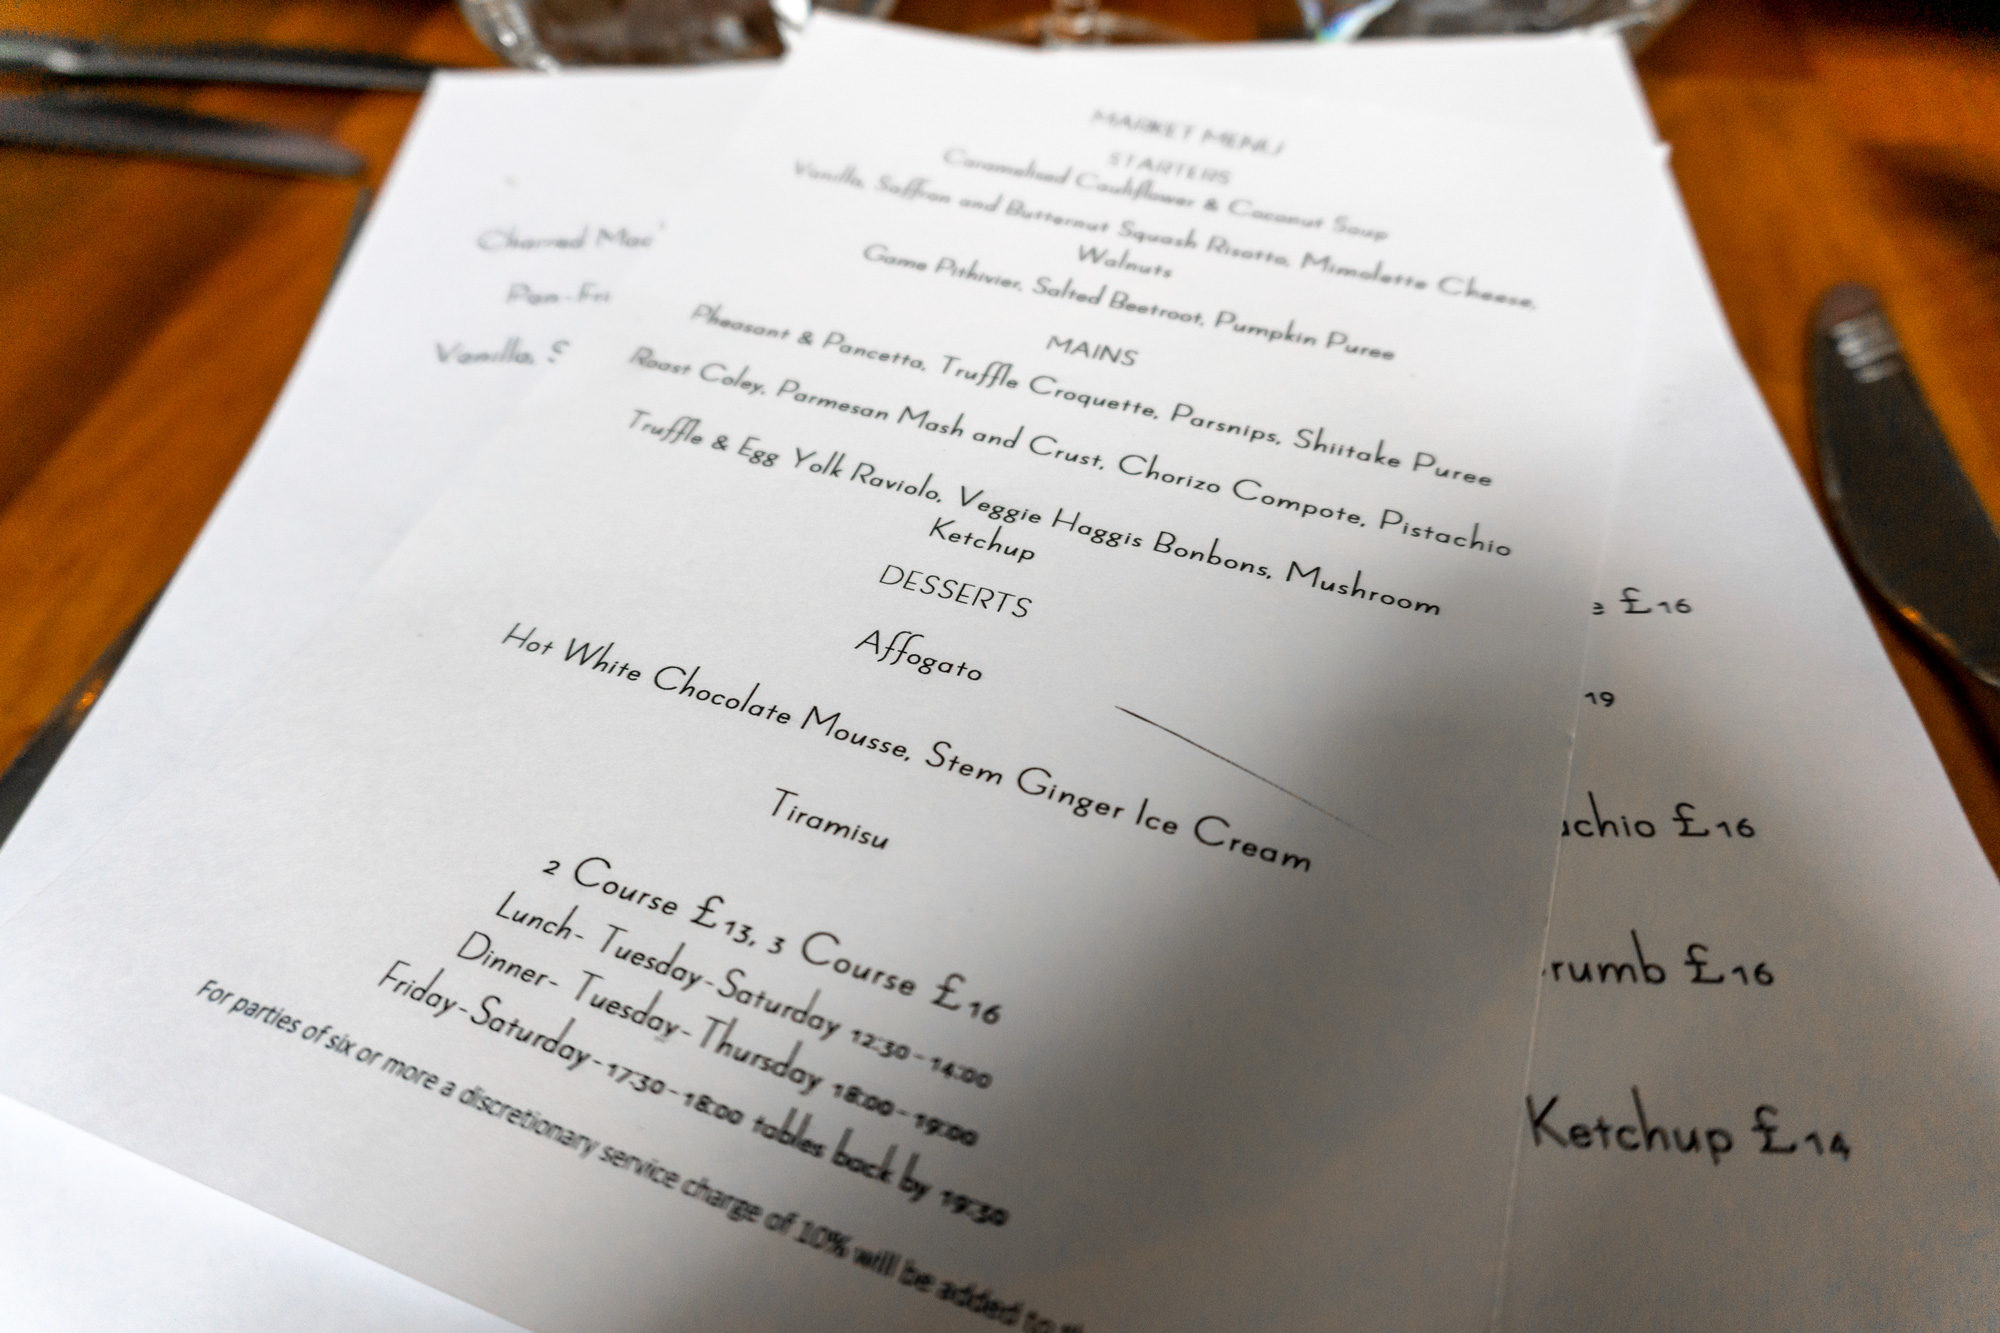 MARKET MENU
STARTERS
Caramelised Cauliflower & Coconut Soup
Vanilla, Saffron and Butternut Squash Risotto, Mimolette Cheese,
Walnuts
Game Pithivier, Salted Beetroot, Pumpkin Puree
MAINS
Pheasant & Pancetta, Truffle Croquette, Parsnips, Shiitake Puree
Roast Coley, Parmesan Mash and Crust, Chorizo Compote, Pistachio
Truffle & Egg Yolk Raviolo, Veggie Haggis Bonbons, Mushroom
Ketchup
DESSERTS
Affogato
Hot White Chocolate Mousse, Stem Ginger Ice Cream
Tiramisu
2 Course £13, 3 Course £16
Lunch- Tuesday-Saturday 12:30-14:00
Dinner- Tuesday-Thursday 18:00-19:00
Friday-Saturday-17:30-18:00 tables back by 19:30
For parties of six or more a discretionary service charge of 10% will be added to
Charred Mac
Pan-Fri
Vanilla, S
£16
19
achio £16
rumb £16
Ketchup £14